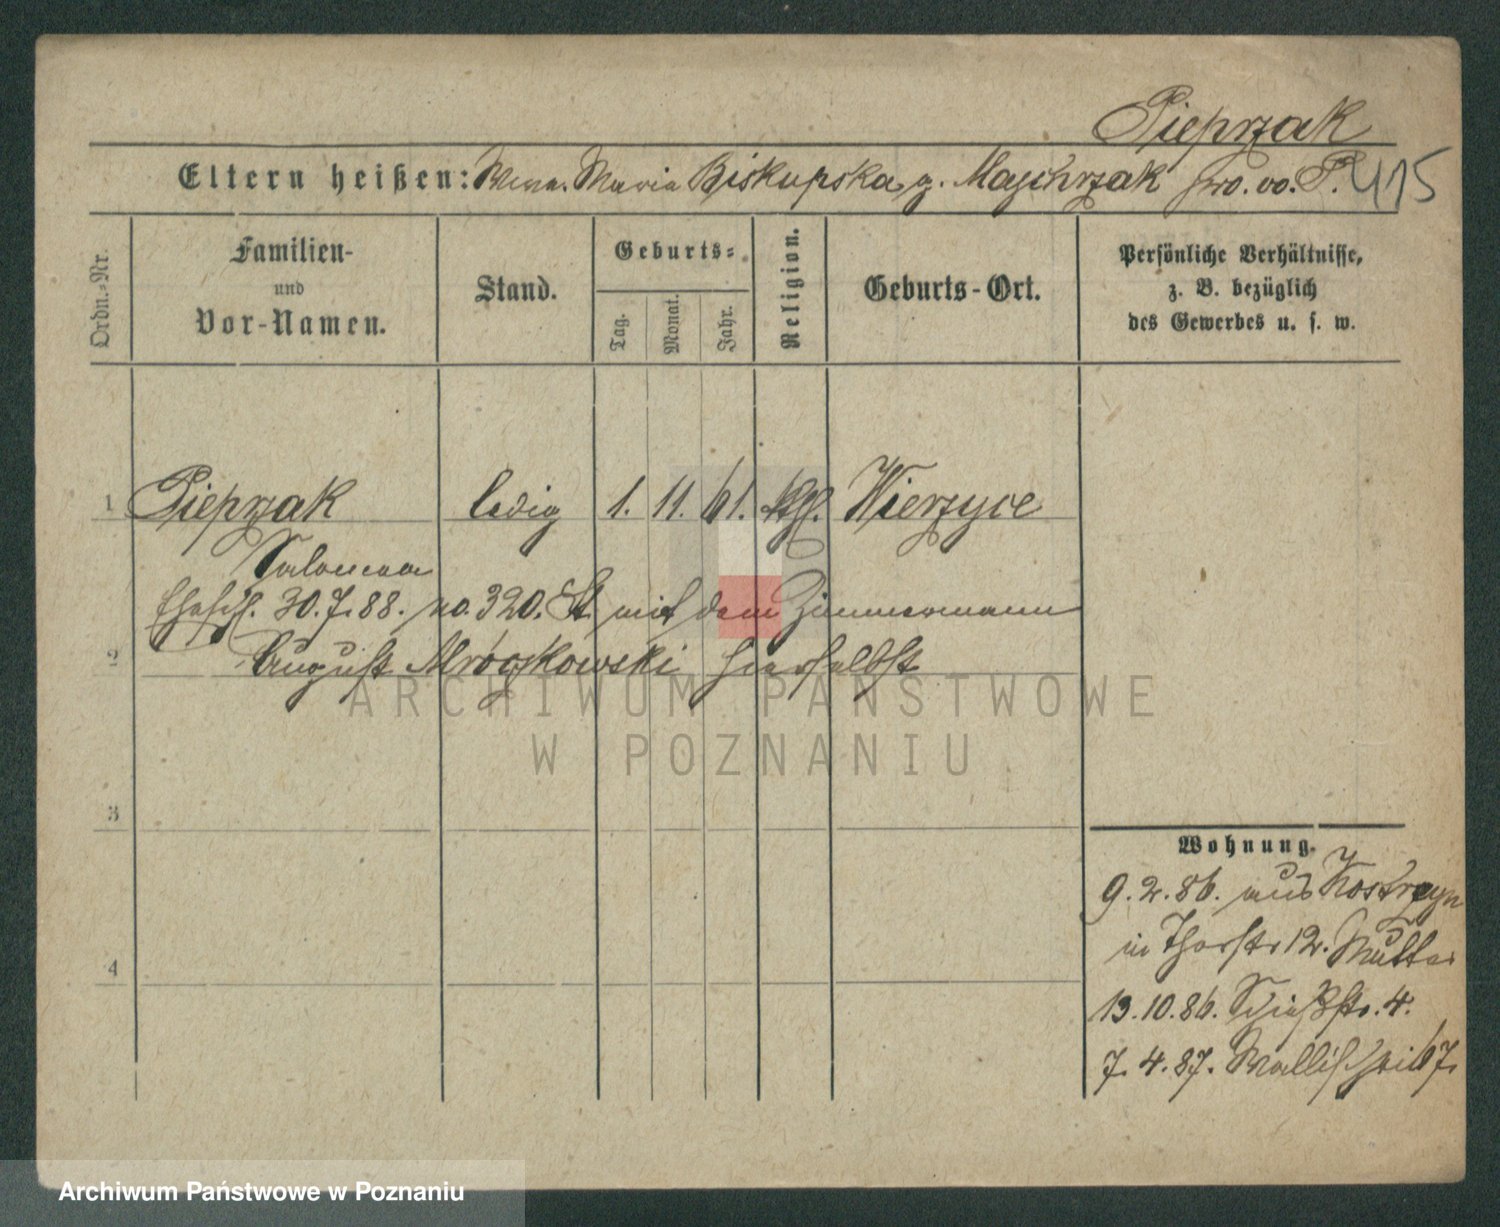 Pieprzak
Eltern heißen: Wwe. Maria Biskupska g. Majchrzak pro. vo. P. 415
Ordn.-Nr.
Familien-
und
Vor-Namen.
Stand.
Geburts-
Tag.
Monat.
Jahr.
Religion.
Geburts-Ort.
Persönliche Verhältnisse,
z. B. bezüglich
des Gewerbes u. s. w.
1 Pieprzak ledig 1. 11. 61. kth. Wierzyce
Salomea
Eheschl. 30.7.88. no. 320. St. mit dem Zimmermann
2 August Mroczkowski hierselbst
3
4
Wohnung.
9.2.86. aus Kostrzyn
in Thorstr 12. Mutter
13.10.86. Schießstr. 4.
7.4.87. Wallischei 67.
ARCHIWUM PAŃSTWOWE
W POZNANIU
Archiwum Państwowe w Poznaniu